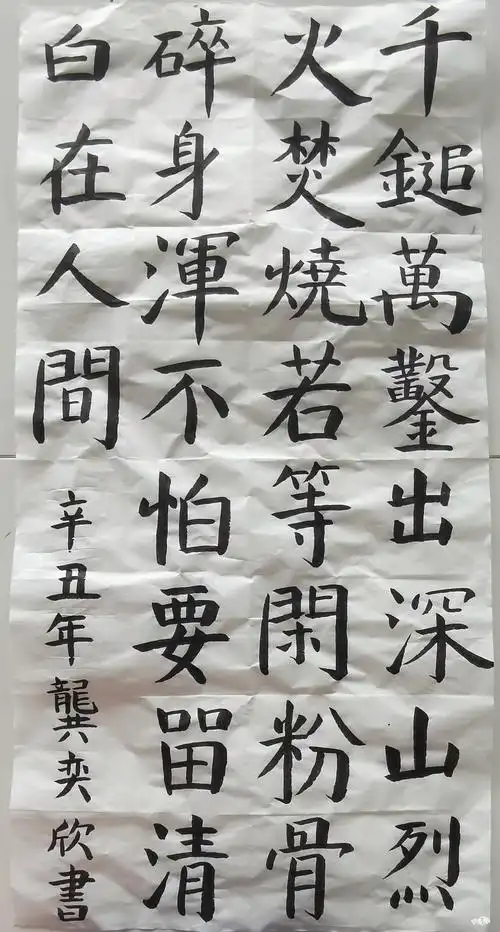 千鎚萬鑿出深山烈
火焚燒若等閑粉骨
碎身渾不怕要留清
白在人間
辛丑年龔奕欣書